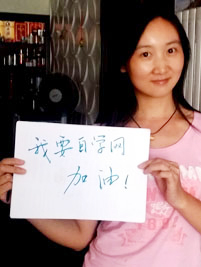 我要自学网
加油！